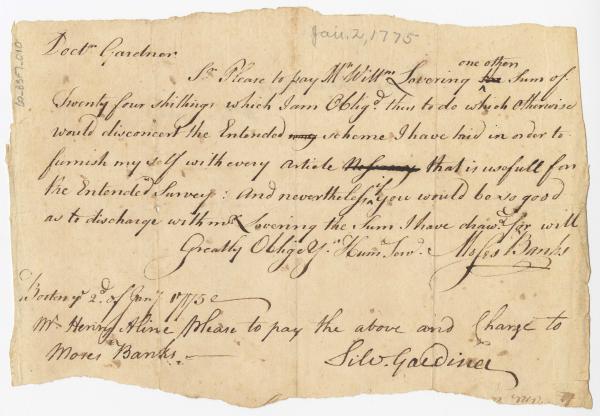 Jan. 2, 1775
Doctr Gardner
Sr Please to pay Mr Willm Lovering one other Sum of
Twenty four shillings which I am Obligd thus to do which otherwise
would disconcert the Entended scheme I have laid in order to
furnish my self with every article that is usefull for
the Entended Survey: and nevertheless if You would be so good
as to discharge with mr Lovering the Sum I have drawd for will
Greatly Oblige Yr Hum Serv. Moses Banks
Boston ye 2d of Jany 1775
Mr Henry Aline Please to pay the above and Charge to
Moses Banks.
Silv. Gardiner